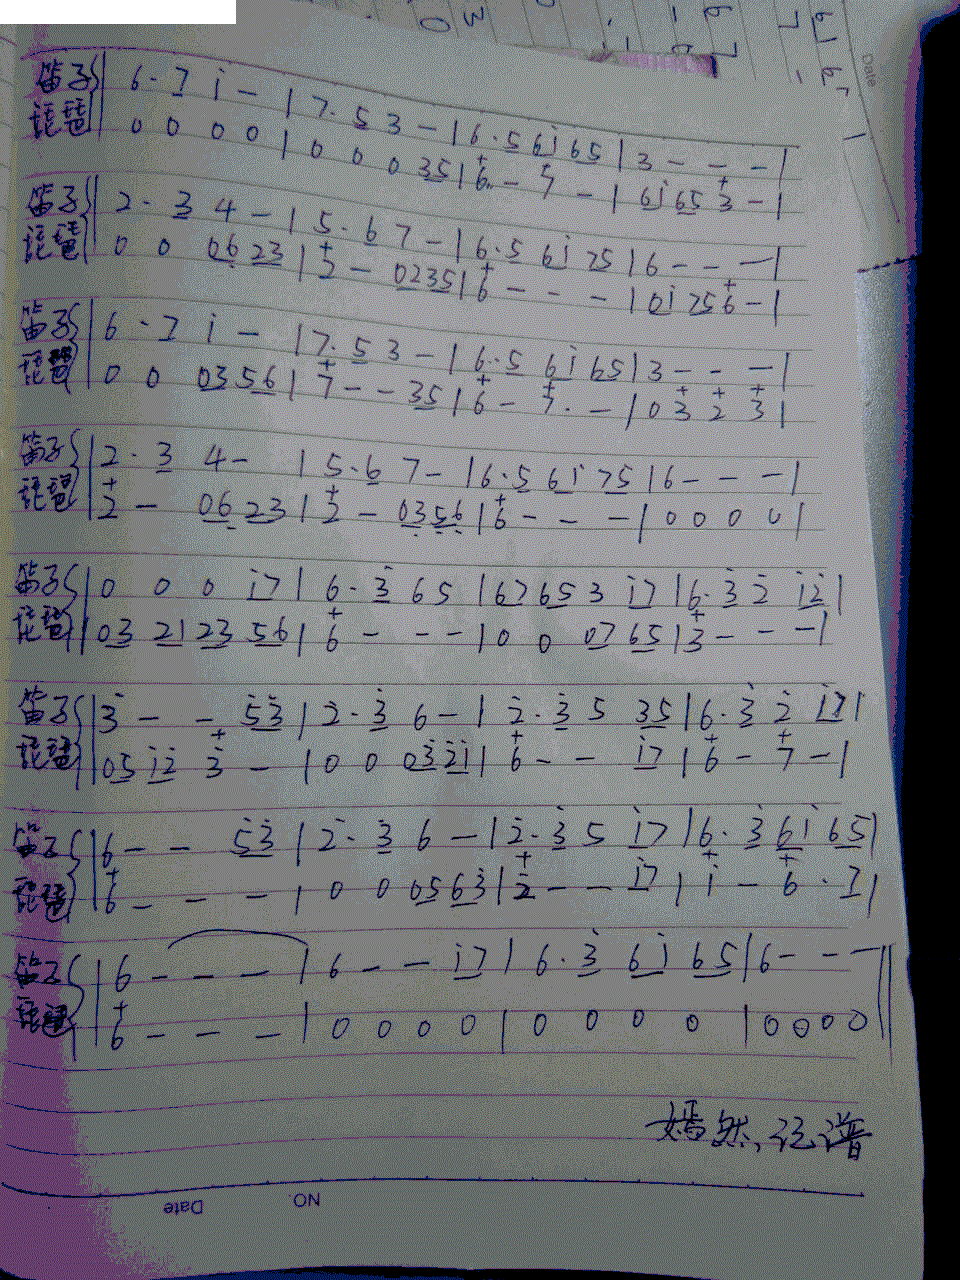 笛子 6·7 i - | 7·5 3 - | 6·5 6i 65 | 3 - - - |
琵琶 0 0 0 0 | 0 0 0 35 | 6 - 7 - | 6i 65 3 - |
笛子 2·3 4 - | 5·6 7 - | 6·5 6i 75 | 6 - - - |
琵琶 0 0 06 23 | 2 - 0235 | 6 - - - | 0i 75 6 - |
笛子 6·7 i - | 7·5 3 - | 6·5 6i 65 | 3 - - - |
琵琶 0 0 03 56 | 7 - - 35 | 6 - 7· - | 0 3 2 3 |
笛子 2·3 4 - | 5·6 7 - | 6·5 6i 75 | 6 - - - |
琵琶 2 - 06 23 | 2 - 03 56 | 6 - - - | 0 0 0 0 |
笛子 0 0 0 i7 | 6·3 6 5 | 67 65 3 i7 | 6·3 2 i2 |
琵琶 03 21 23 56 | 6 - - - | 0 0 07 65 | 3 - - - |
笛子 3 - - 53 | 2·3 6 - | 2·3 5 35 | 6·3 2 i7 |
琵琶 05 i2 3 - | 0 0 03 2i | 6 - - i7 | 6 - 7 - |
笛子 6 - - 53 | 2·3 6 - | 2·3 5 i7 | 6·3 6i 65 |
琵琶 6 - - - | 0 0 05 63 | 2 - - i7 | i - 6·7 |
笛子 6 - - - | 6 - - i7 | 6·3 6i 65 | 6 - - - ||
琵琶 6 - - - | 0 0 0 0 | 0 0 0 0 | 0 0 0 0 ||
嫣然,记谱
NO.
Date
Date